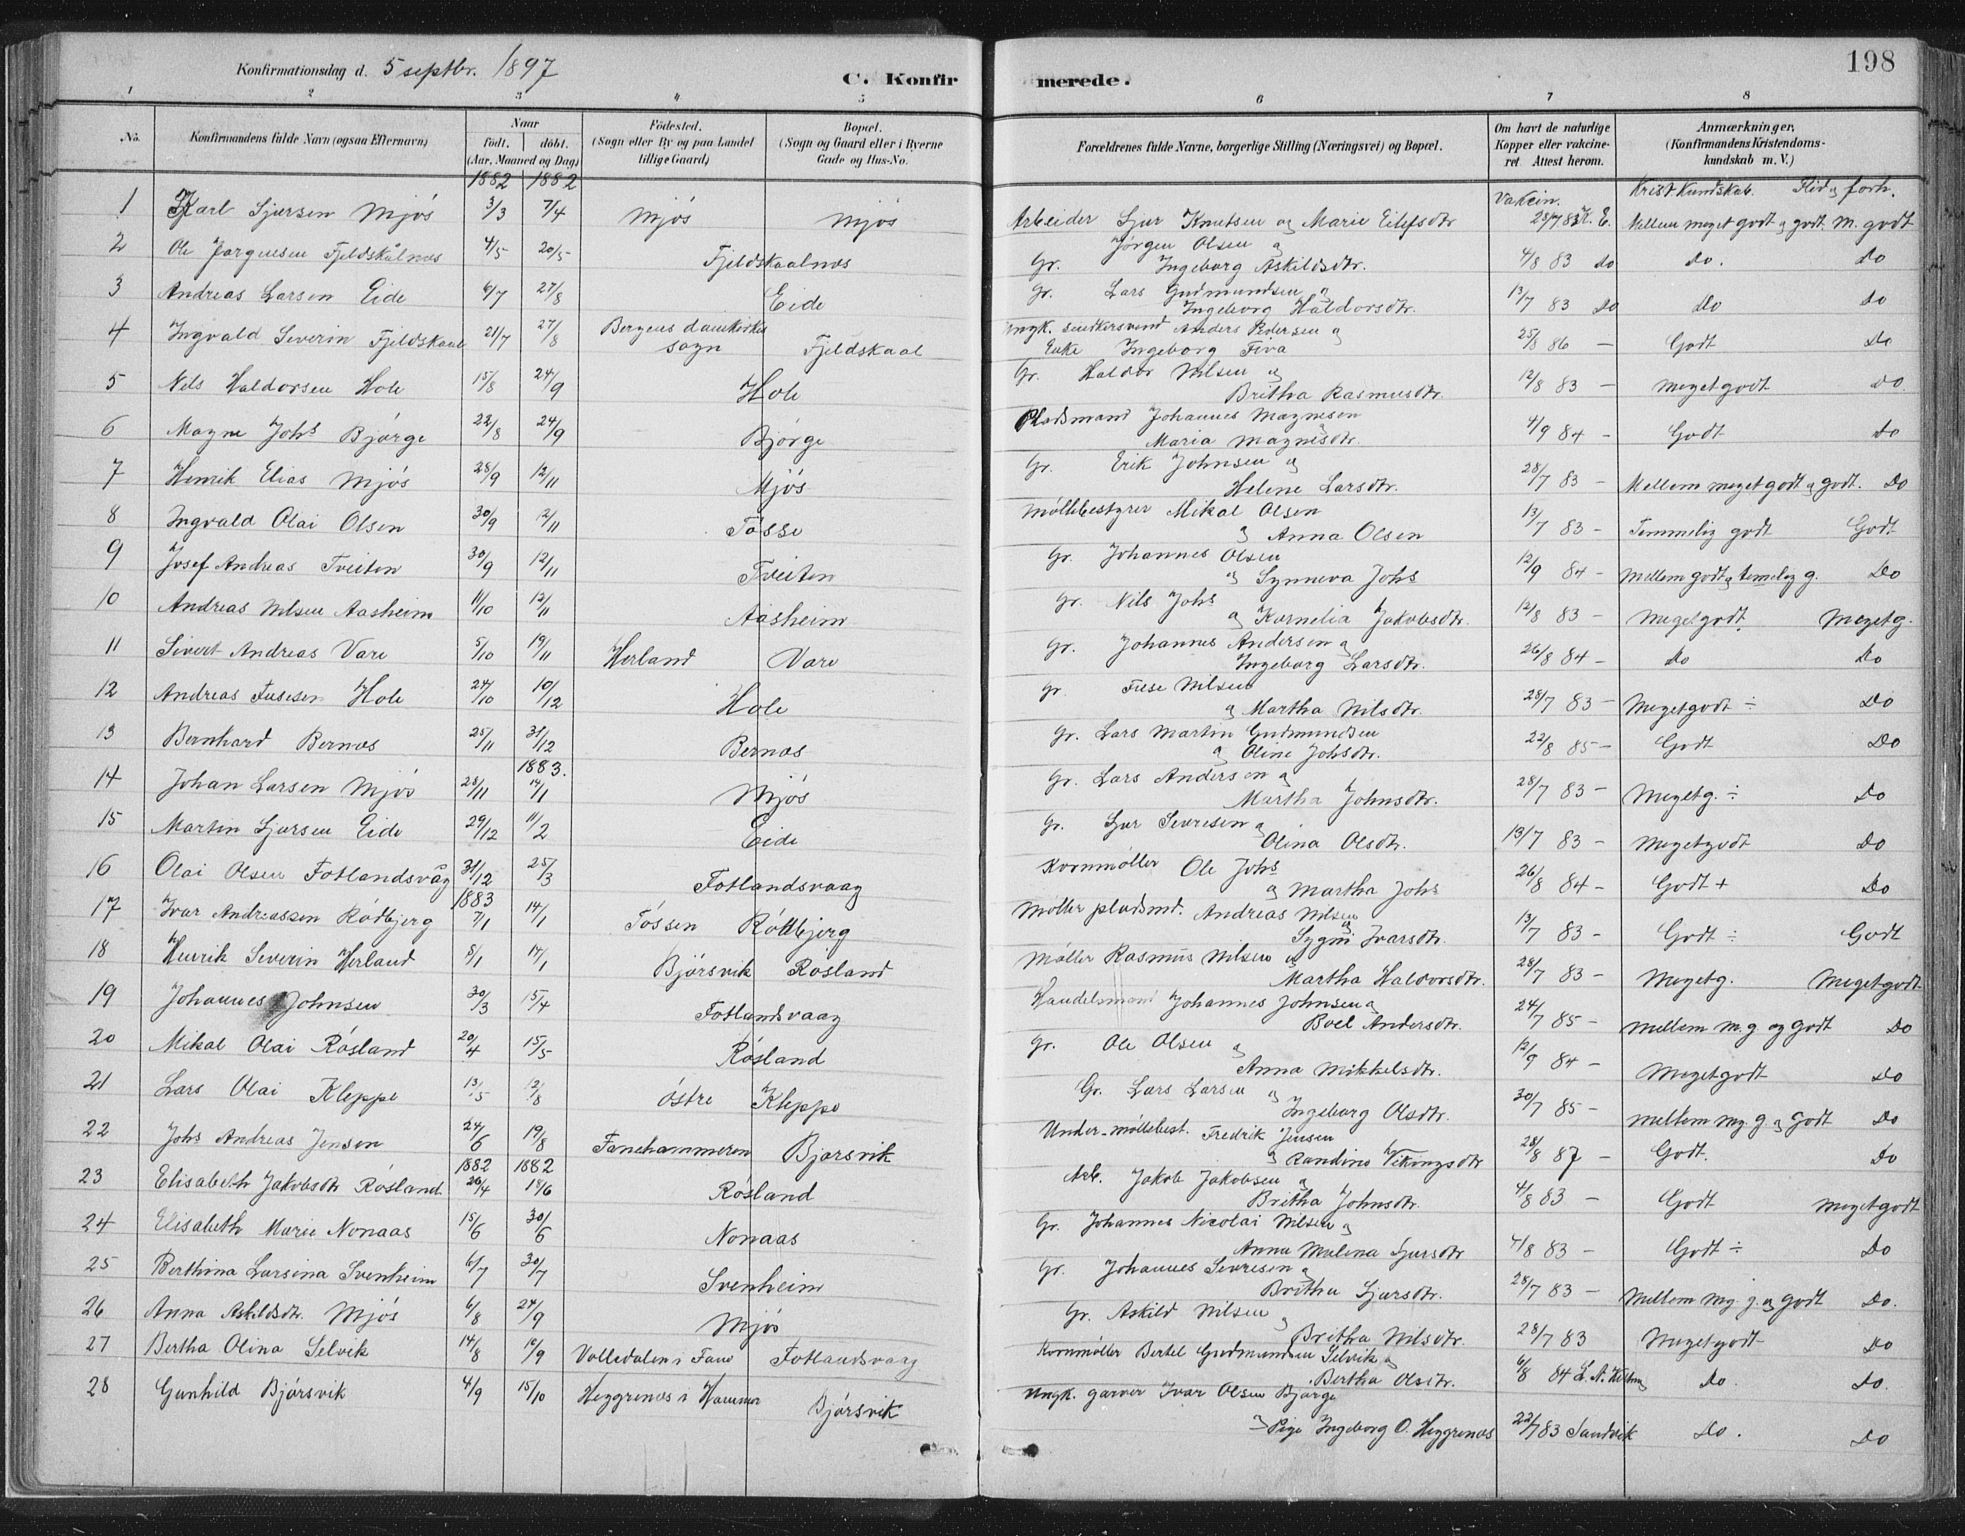 198
Konfirmationsdag d. 5 septbr. 1897
C. Konfirmerede.
1 2 3 4 5 6 7 8
No. Konfirmandens fulde Navn (ogsaa Efternavn) Naar født. døbt. (Aar, Maaned og Dag) Fødested. (Sogn eller By og paa Landet tillige Gaard) Bopæl. (Sogn og Gaard eller i Byerne Gade og Hus-No. Forældrenes fulde Navne, borgerlige Stilling (Næringsvei) og Bopæl. Om havt de naturlige Kopper eller vakcineret. Attest herom. Anmærkninger. (Konfirmandens Kristendomskundskab m. V.)
1882 1882 Vakcin. Krist Kundskab. Flid og forh.
1 Karl Sjursen Mjøs 3/3 7/4 Mjøs Mjøs Arbeider Sjur Knutsen og Marie Eilefsdtr 28/7 83 K. E. Mellem meget godt og godt. M. godt
2 Ole Jørgensen Fjeldskålnes 4/5 20/5 Fjeldskaalnæs Gr. Jørgen Olsen og Ingeborg Askildsdtr. 4/8 83 do do. Do
3 Andreas Larsen Eide 6/7 27/8 Eide Gr. Lars Gudmundsen og Ingeborg Haldorsdtr. 13/7 83 Do Do Do
4 Ingvald Severin Fjeldskaal 21/7 27/8 Bergens domkirkes sogn Fjeldskaal Ungk. snedkersvend Anders Pedersen og Enke Ingeborg Fiva 25/8 86 — Godt Do
5 Nils Haldorsen Hole 15/8 24/9 Hole Gr. Haldor Nilsen og Britha Rasmusdtr. 12/8 83 — Megetgodt Do.
6 Magne Johs Bjørge 22/8 24/9 Bjørge Pladsmand Johannes Magnesen og Maria Magnesdtr. 4/9 84 — Godt Do
7 Henrik Elias Mjøs 28/9 12/11 Mjøs Gr. Erik Johnsen og Helene Larsdtr. 28/7 83 — Mellem megetgodt og godt. Do
8 Ingvald Olai Olsen 30/9 12/11 Tøsse Møllebestyrer Mikal Olsen og Anna Olsen 13/7 83 — Temmelig godt Godt
9 Josef Andreas Tveiten 30/9 12/11 Tveiten Gr. Johannes Olsen og Synneva Johs 12/9 84 — Mellem godt og temelig g. Do
10 Andreas Nilsen Aasheim 11/10 12/11 Aasheim Gr. Nils Johs og Kornelia Jakobsdtr. 12/8 83 — Megetgodt. Megetg.
11 Sivert Andreas Vare 5/10 19/11 Herland Vare Gr. Johannes Andersen og Ingeborg Larsdtr. 26/8 84 — Do Do
12 Andreas Fusesen Hole 24/10 10/12 Hole Gr. Fuse Nilsen og Martha Nilsdtr. 28/7 83 — Megetgodt ÷ Do
13 Bernhard Bernæs 25/11 31/12 Bernæs Gr. Lars Martin Gudmundsen og Oline Johsdtr. 22/8 85 — Godt Do
1883.
14 Johan Larsen Mjøs 28/11 14/1 Mjøs Gr. Lars Andersen og Martha Johnsdtr. 28/7 83 — Megetg. ÷ Do
15 Martin Sjursen Eide 29/12 11/2 Eide Gr. Sjur Severesen og Olina Olsdtr. 13/7 83 — Megetgodt Do
16 Olai Olsen Fotlandsvåg 31/12 25/3 Fotlandsvaag Kornmøller Ole Johs og Martha Johs 26/8 84 — Godt + Do
1883
17 Ivar Andreassen Rødbjerg 7/1 14/1 Tøssen Røttbjerg Møller pladsmd. Andreas Nilsen og Sygni Ivarsdtr. 13/7 83 — Godt ÷ Godt
18 Henrik Severin Herland 5/1 14/1 Bjørsvik Røsland Møller Rasmus Nilsen og Martha Haldorsdtr. 28/7 83 — Megetg. Megetgodt
19 Johannes Johnsen 30/3 15/4 Fotlandsvaag Handelsmand Johannes Johnsen og Boel Andersdtr. 24/7 85 — Mellem m.g og godt Do
20 Mikal Olai Røsland 20/4 15/5 Røsland Gr. Ole Olsen og Anna Mikkelsdtr. 12/9 84 — Megetgodt Do
21 Lars Olai Kleppe 13/5 12/8 Østre Kleppe Gr. Lars Larsen og Ingeborg Olsdtr. 30/7 85 — Mellem mg. g og Godt Do
22 Johs Andreas Jensen 24/6 19/8 Fanehammeren Bjørsvik Under-møllebest. Fredrik Jensen og Randine Vikingsdtr 28/8 87 — Godt. Do
1882 1882
23 Elisabeth Jakobsdtr Røsland 26/4 18/6 Røsland Arb. Jakob Jakobsen og Britha Johnsdtr. 4/8 83 — Godt Megetgodt
24 Elisabeth Marie Nonaas 15/6 30/6 Nonaas Gr. Johannes Nicolai Nilsen og Anna Malena Sjursdtr 4/8 83 — Godt ÷ Do
25 Berthina Larsina Svenheim 6/7 30/7 Svenheim Gr. Johannes Severesen og Britha Sjursdtr. 28/7 83 — Mellem mg. g. og godt Do.
26 Anna Askildsdtr. Mjøs 6/8 24/9 Mjøs Gr. Askild Nilsen og Britha Nilsdtr. 28/7 83 Megetgodt Do
27 Bertha Olina Selvik 14/8 10/9 Volledalen i Fane Fotlandsvaag Kornmøller Bertel Gudmundsen Selvik og Bertha Olsdtr. 6/8 84 Do. Do.
28 Gunhild Bjørsvik 4/9 15/10 Heggrenæs i Hammer Bjørsvik Ungk. garver Ivar Olsen Bjørge og Pige Ingeborg O. Heggrenæs 22/7 83 Sandvik Do. Do